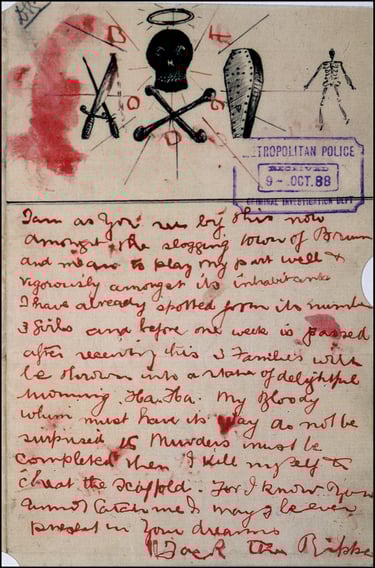 METROPOLITAN POLICE
RECEIVED
9-OCT.88
CRIMINAL INVESTIGATION DEPT
I am as you see by this now
amongst the slogging town of Brum
and mean to play my part well &
vigorously amongst its inhabitants
I have already spotted from its number
3 girls and before one week is passed
after receiving this 3 Families will
be thrown into a state of delightful
mourning. Ha. Ha. My Bloody
whim must have its way do not be
surprised 15 Murders must be
completed then I kill myself to
cheat the scaffold. For I know you
cannot catch me & I may be ever
present in your dreams
Jack the Ripper